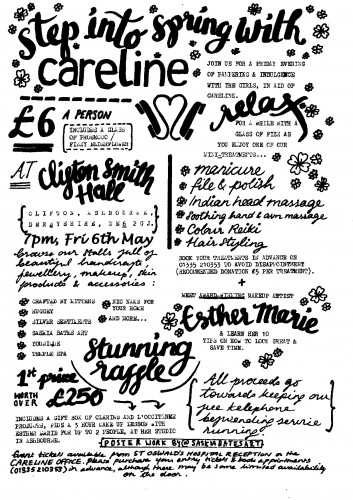 Step into Spring with
careline
JOIN US FOR A FRIDAY EVENING
OF PAMPERING & INDULGENCE
WITH THE GIRLS, IN AID OF
CARELINE.
£6 A PERSON
INCLUDES A GLASS
OF PROSECCO /
FIZZY ELDERFLOWER
Relax
FOR A WHILE WITH A
GLASS OF FIZZ AS
YOU ENJOY ONE OF OUR
MINI-TREATMENTS...
AT Clifton Smith
Hall
CLIFTON, ASHBOURNE,
DERBYSHIRE, DE6 2GJ.
manicure
file & polish
Indian head massage
Soothing hand & arm massage
Colour Reiki
Hair Styling
7pm, Fri 6th May
browse our stalls full of
beautiful handcrafts,
jewellery, makeup, skin
products & accessories:
BOOK YOUR TREATMENTS IN ADVANCE ON
01335 210353 TO AVOID DISAPPOINTMENT
(RECOMMENDED DONATION £5 PER TREATMENT).
+
CRAFTED BY KITTENS
HUGGGY
SILVER SENTIMENTS
SASKIA BATES ART
YOUNIQUE
TEMPLE SPA
NIC NACS FOR
YOUR HOME
AND MORE...
MEET AWARD-WINNING MAKEUP ARTIST
Esther Marie
& LEARN HER 10
TIPS ON HOW TO LOOK GREAT &
SAVE TIME.
Stunning
raffle
1st prize
WORTH
OVER £250
INCLUDES A GIFT BOX OF CLARINS AND L'OCCITANE
PRODUCTS, PLUS A 3 HOUR MAKE UP LESSON WITH
ESTHER MARIE FOR UP TO 2 PEOPLE, AT HER STUDIO
IN ASHBOURNE.
All proceeds go
towards keeping our
free telephone
befriending service
running!
POSTER WORK BY @SASKIABATESART
Event tickets available from ST OSWALD'S HOSPITAL RECEPTION or the
CARELINE OFFICE. Please purchase your entry ticket & book appointments
(01335 210353) in advance, although there may be some limited availability
on the door.